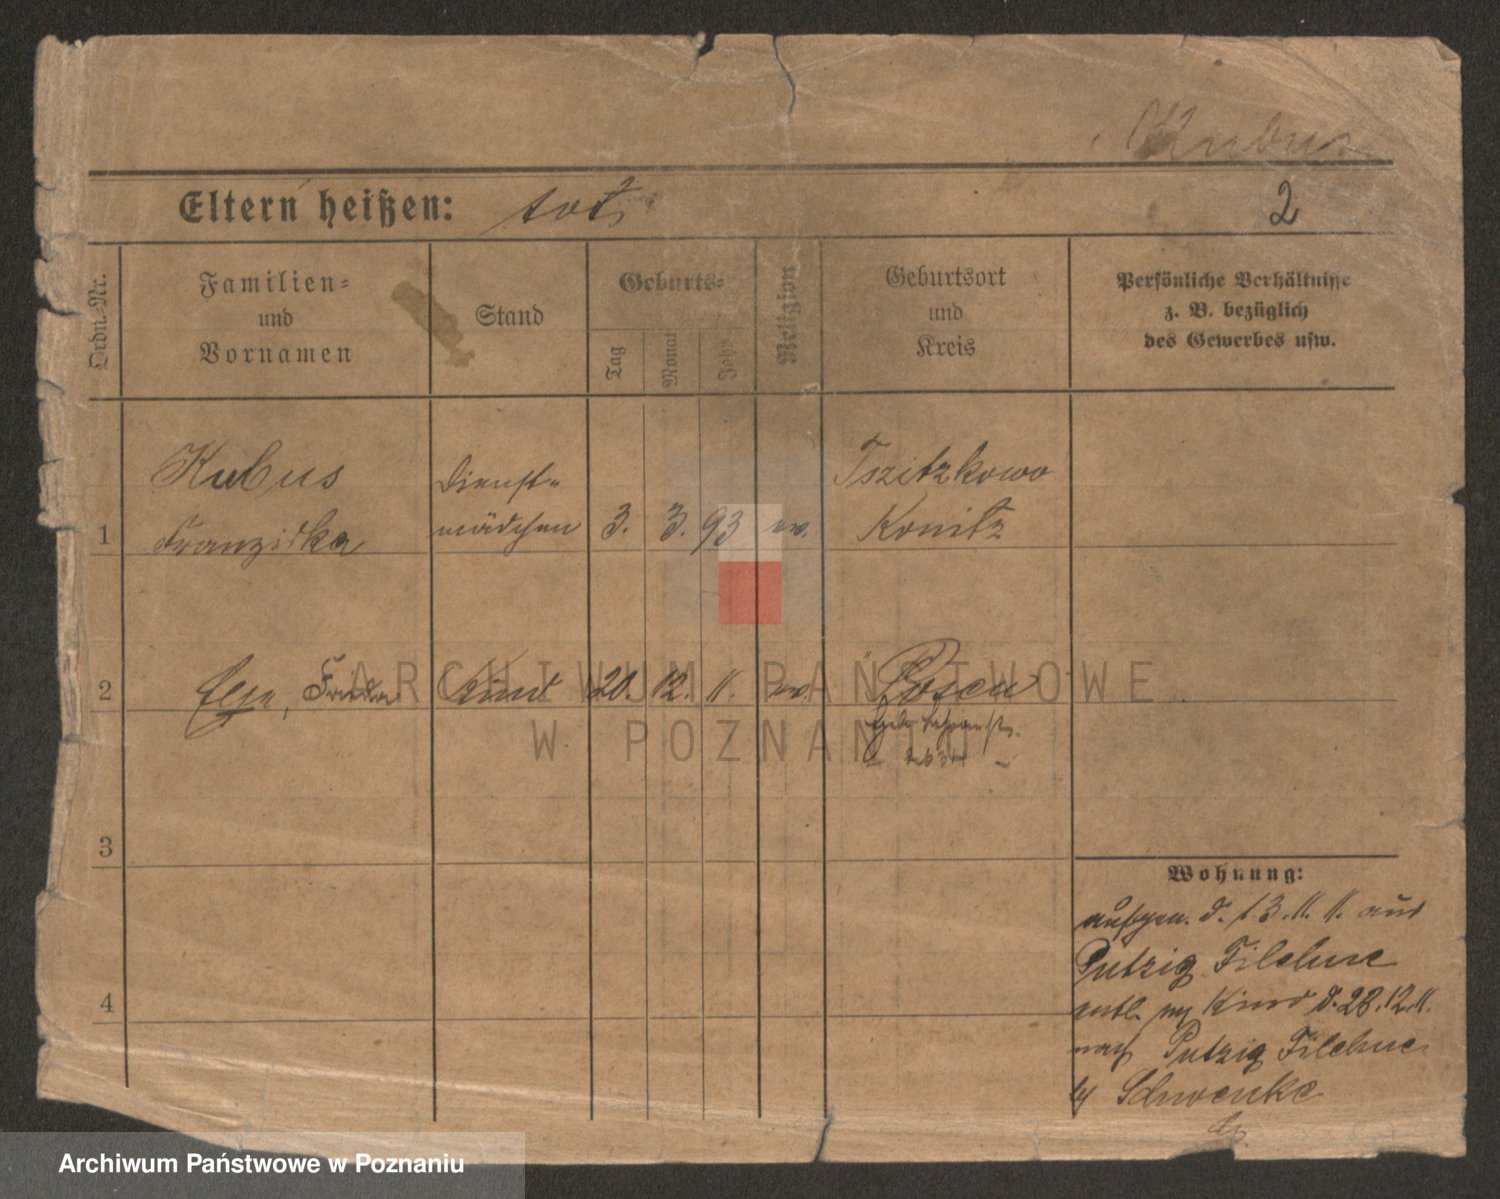 Kubus
Eltern heißen: tot
2
Ordn.-Nr.
Familien=
und
Vornamen
Stand
Geburts=
Tag
Monat
Jahr
Religion
Geburtsort
und
Kreis
Persönliche Verhältnisse
z. B. bezüglich
des Gewerbes usw.
Kubus
Dienst=
Tszitzkowo
1 Franziska mädchen 3. 3. 93 ev. Konitz
2 Else, Frieda Kind 20. 12. 11. ev. Posen
3
Wohnung:
aufgen. d. 13. 11. 11. aus
Putzig Filehne
4
entl. Kind d. 28. 12. 11.
nach Putzig Filehne
Schwenke
ARCHIWUM PAŃSTWOWE
W POZNANIU
Archiwum Państwowe w Poznaniu